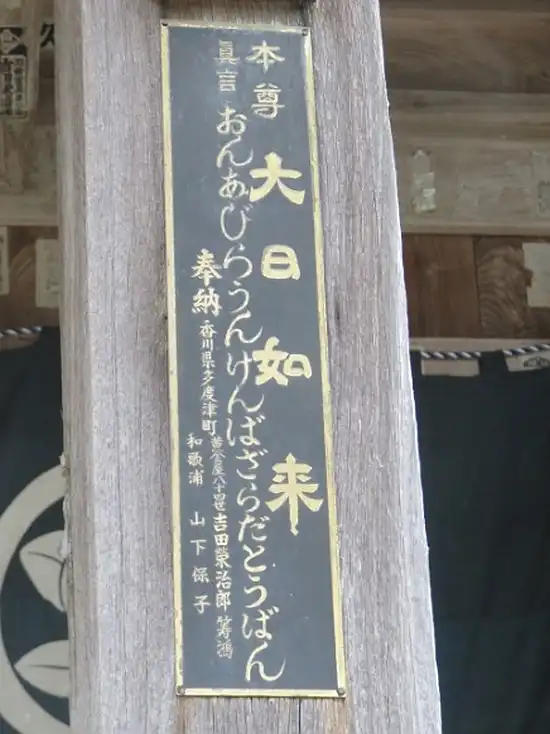 本尊 大日如来
真言 おんあびらうんけんばざらだとうばん
奉納 香川県多度津町 黄金屋八十四世 吉田榮治郎
和歌浦 山下保子